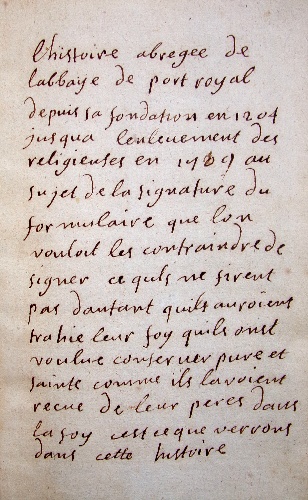 lhistoire abregee de
labbaye de port royal
depuis sa fondation en 1204
jusqua lenleuement des
religieuses en 1709 au
sujet de la signature du
formulaire que lon
vouloit les contraindre de
signer ce quils ne firent
pas dautant quils auroient
trahie leur foy quils onst
voulue conseruer pure et
sainte comme ils lavoient
recue de leur peres dans
la foy cest ce que verrons
dans cette histoire